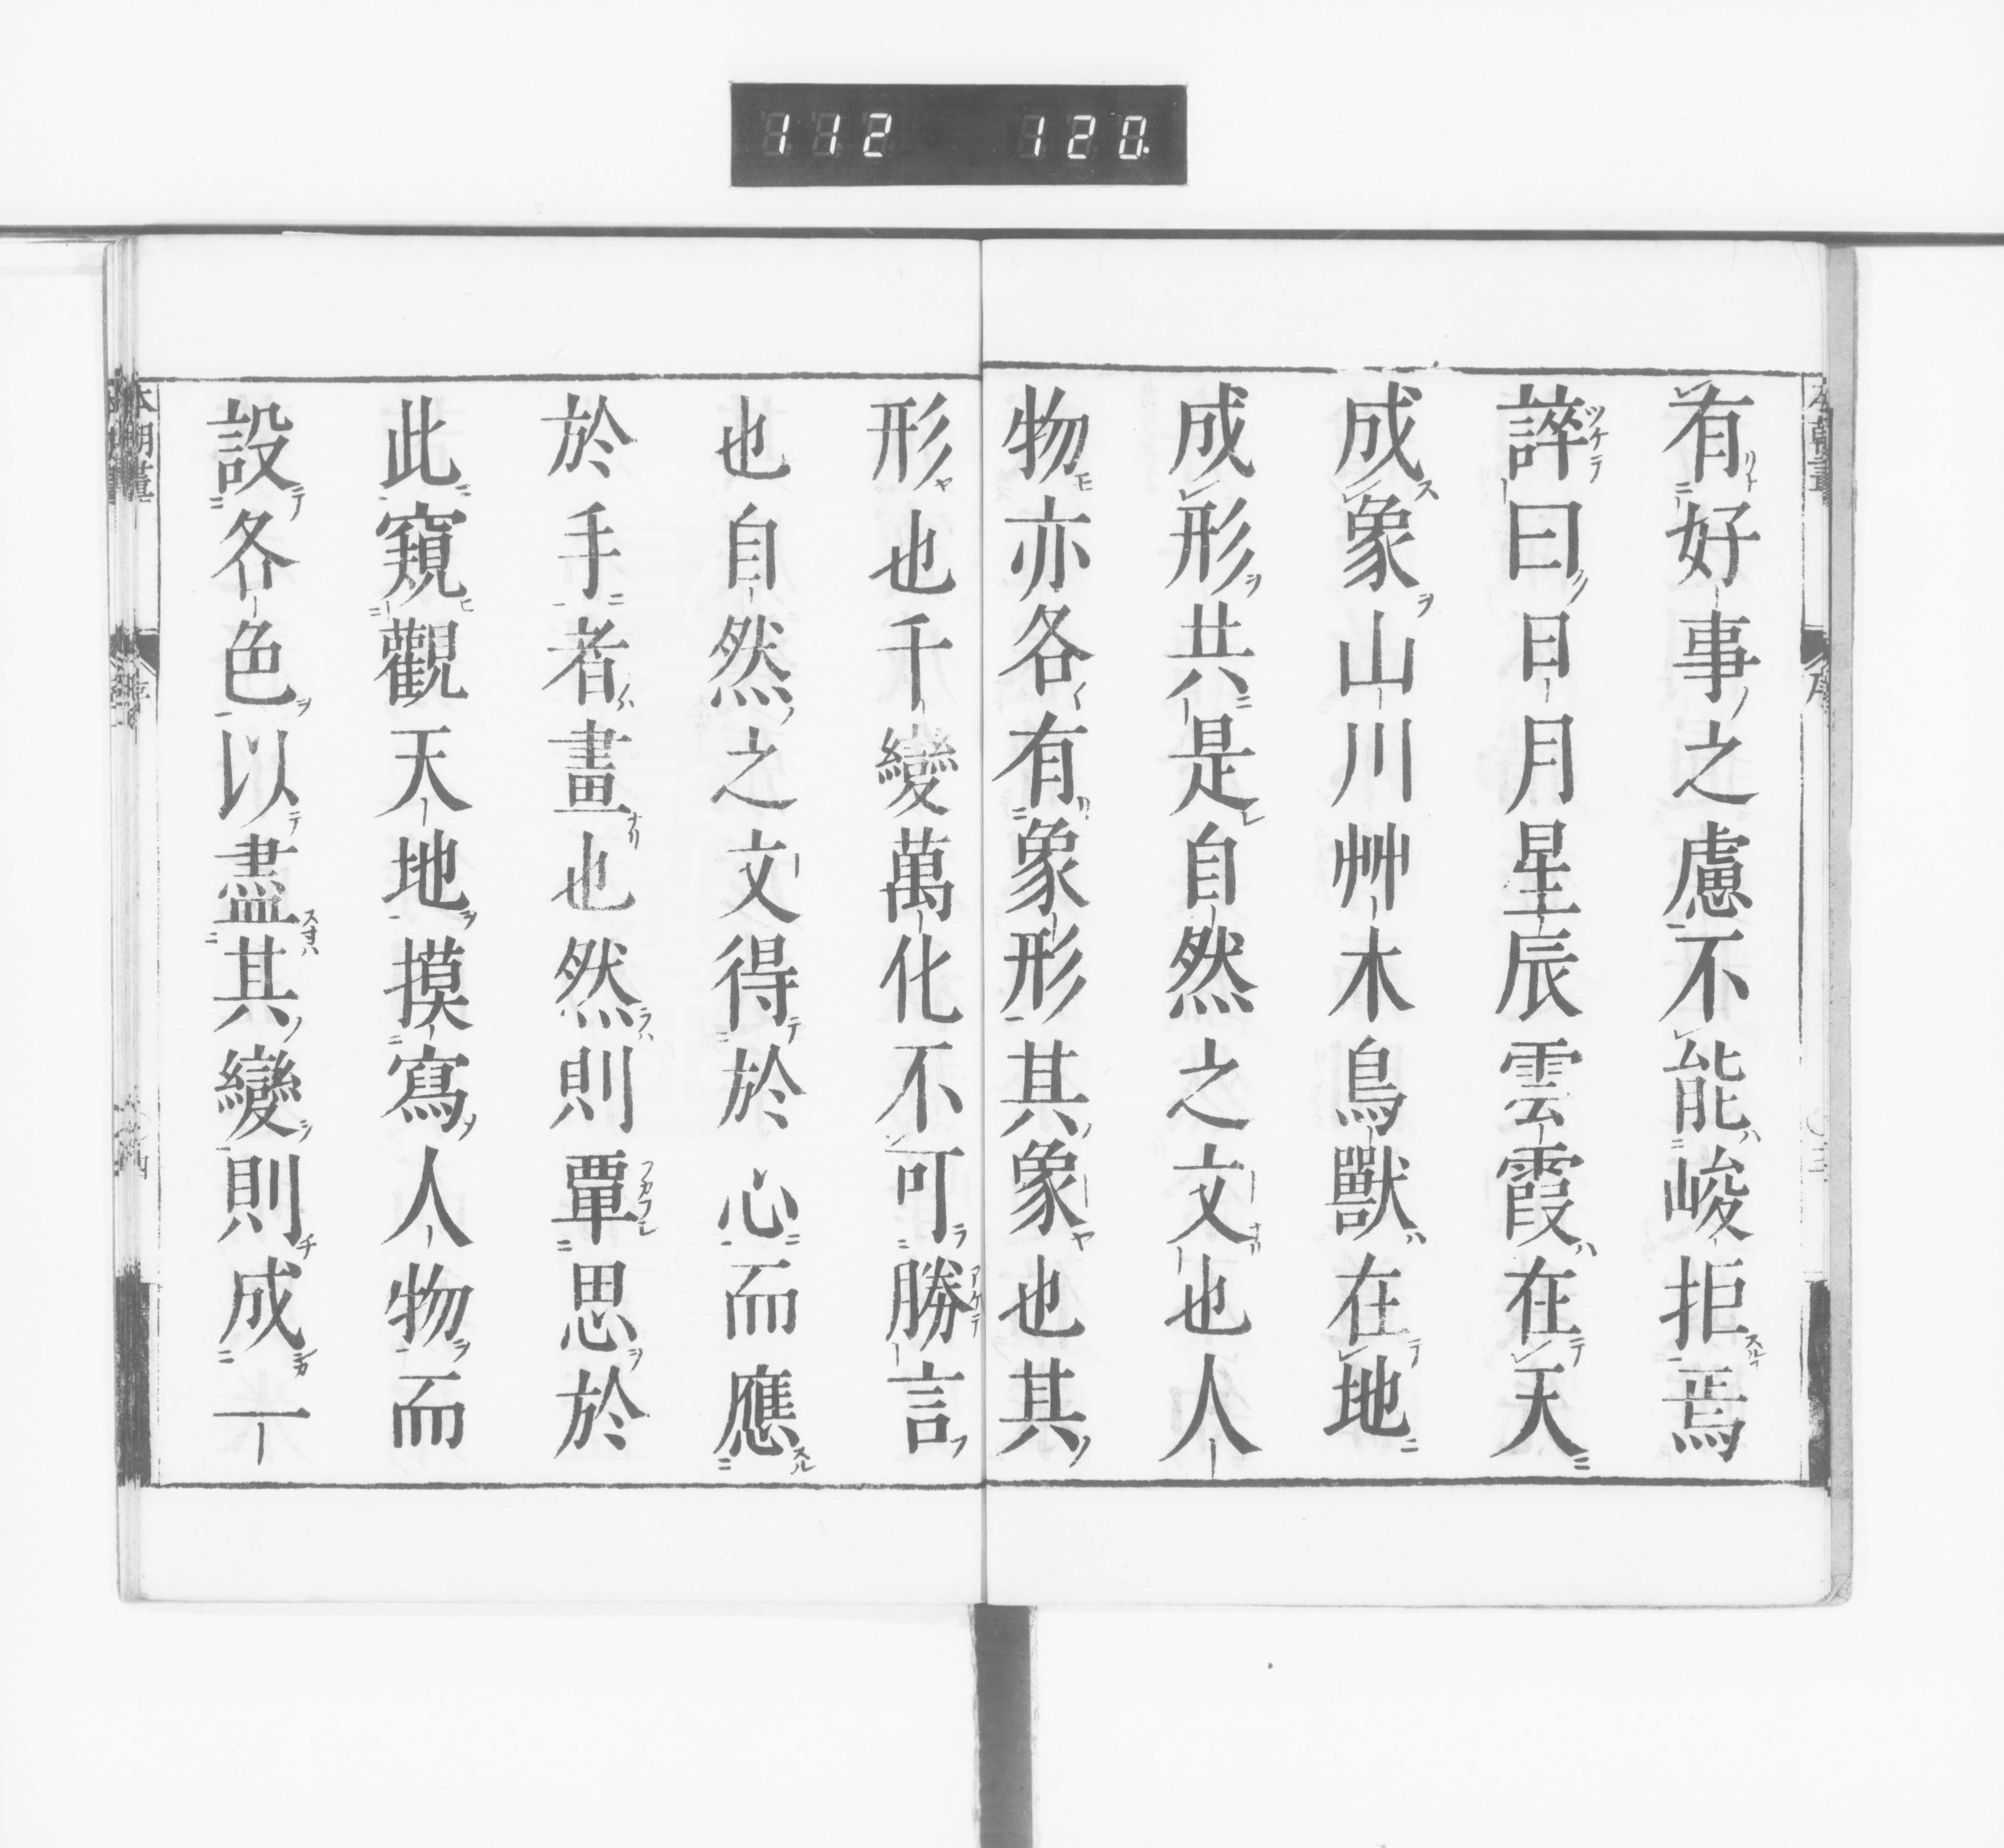 112 120
有好事之慮不能峻拒焉
誶曰日月星辰雲霞在天
成象山川艸木鳥獸在地
成形共是自然之文也人
物亦各有象形其象也其
形也千變萬化不可勝言
也自然之文得於心而應
於手者畫也然則覃思於
此窺觀天地摸寫人物而
設各色以盡其變則成一